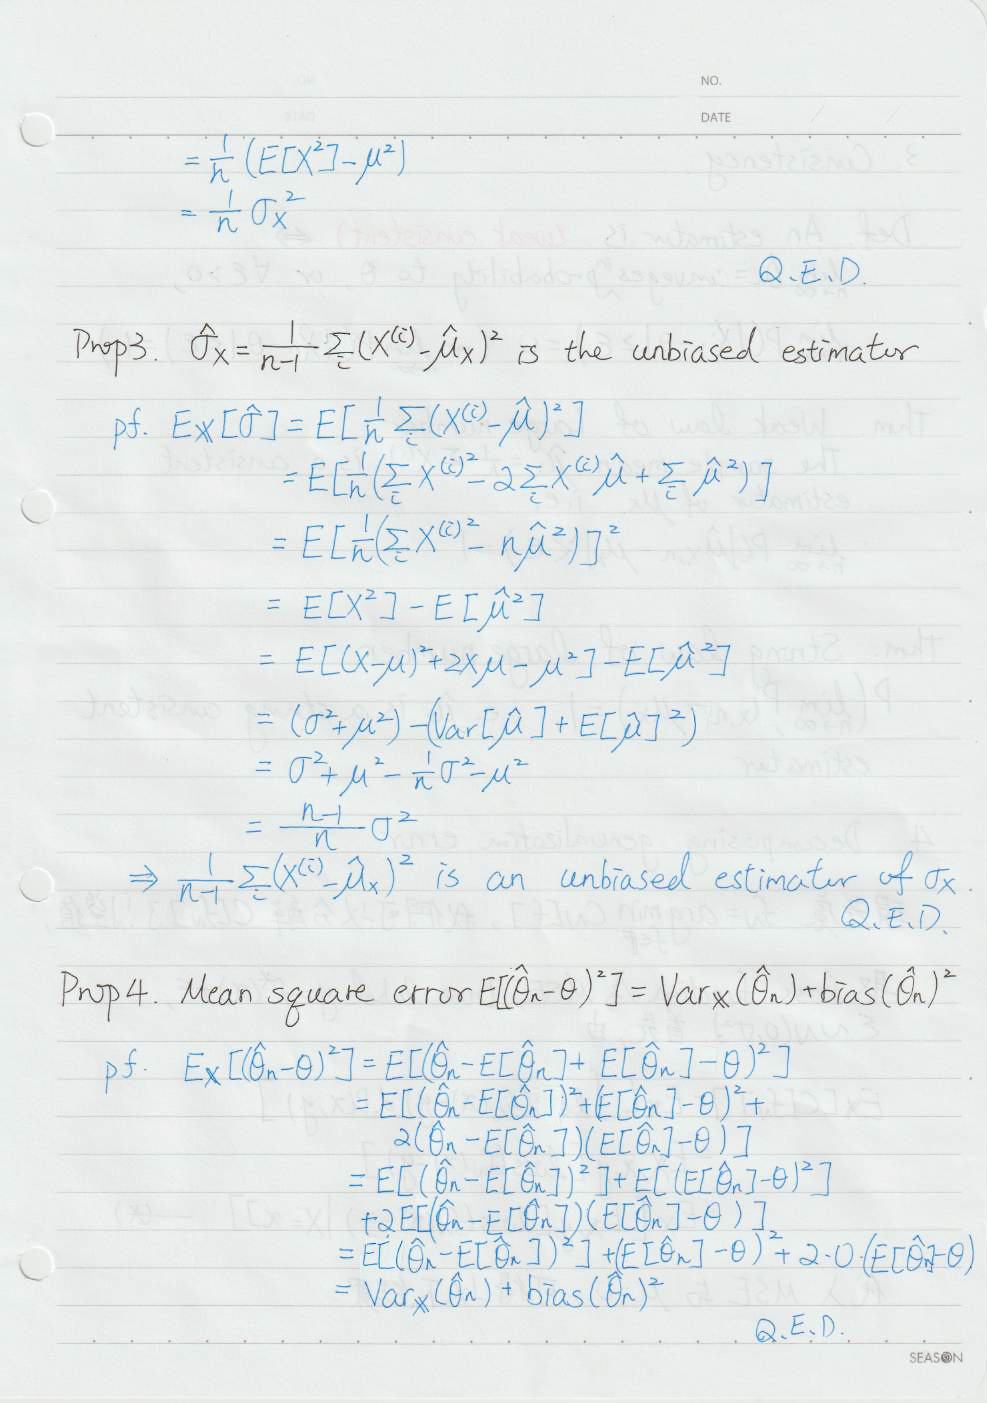 NO.
DATE
= 1/n (E[X²] - μ²)
= 1/n σ_X²
Q.E.D.
Prop3. σ̂_X = 1/(n-1) Σ_i (X⁽ⁱ⁾ - μ̂_X)² is the unbiased estimator
pf. E_𝕏[σ̂] = E[1/n Σ_i (X⁽ⁱ⁾ - μ̂)²]
= E[1/n (Σ_i X⁽ⁱ⁾² - 2Σ_i X⁽ⁱ⁾ μ̂ + Σ_i μ̂²)]
= E[1/n (Σ_i X⁽ⁱ⁾² - nμ̂²)]²
= E[X²] - E[μ̂²]
= E[(X-μ)² + 2Xμ - μ²] - E[μ̂²]
= (σ² + μ²) - (Var[μ̂] + E[μ̂]²)
= σ² + μ² - 1/n σ² - μ²
= (n-1)/n σ²
⇒ 1/(n-1) Σ_i (X⁽ⁱ⁾ - μ̂_X)² is an unbiased estimator of σ_X.
Q.E.D.
Prop4. Mean square error E[(θ̂_n - θ)²] = Var_𝕏(θ̂_n) + bias(θ̂_n)²
pf. E_𝕏[(θ̂_n - θ)²] = E[(θ̂_n - E[θ̂_n] + E[θ̂_n] - θ)²]
= E[(θ̂_n - E[θ̂_n])² + (E[θ̂_n] - θ)² +
2(θ̂_n - E[θ̂_n])(E[θ̂_n] - θ)]
= E[(θ̂_n - E[θ̂_n])²] + E[(E[θ̂_n] - θ)²]
+ 2E[(θ̂_n - E[θ̂_n])(E[θ̂_n] - θ)]
= E[(θ̂_n - E[θ̂_n])²] + (E[θ̂_n] - θ)² + 2·0·(E[θ̂_n] - θ)
= Var_𝕏(θ̂_n) + bias(θ̂_n)²
Q.E.D.
SEASON